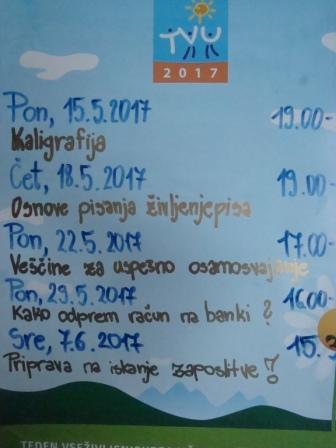 TVU
2017
Pon, 15.5.2017 19.00-
Kaligrafija
Čet, 18.5.2017 19.00-
Osnove pisanja življenjepisa
Pon, 22.5.2017 17.00-
Veščine za uspešno osamosvajanje
Pon, 29.5.2017 16.00
Kako odprem račun na banki?
Sre, 7.6.2017 15.
Priprava na iskanje zaposlitve!
TEDEN